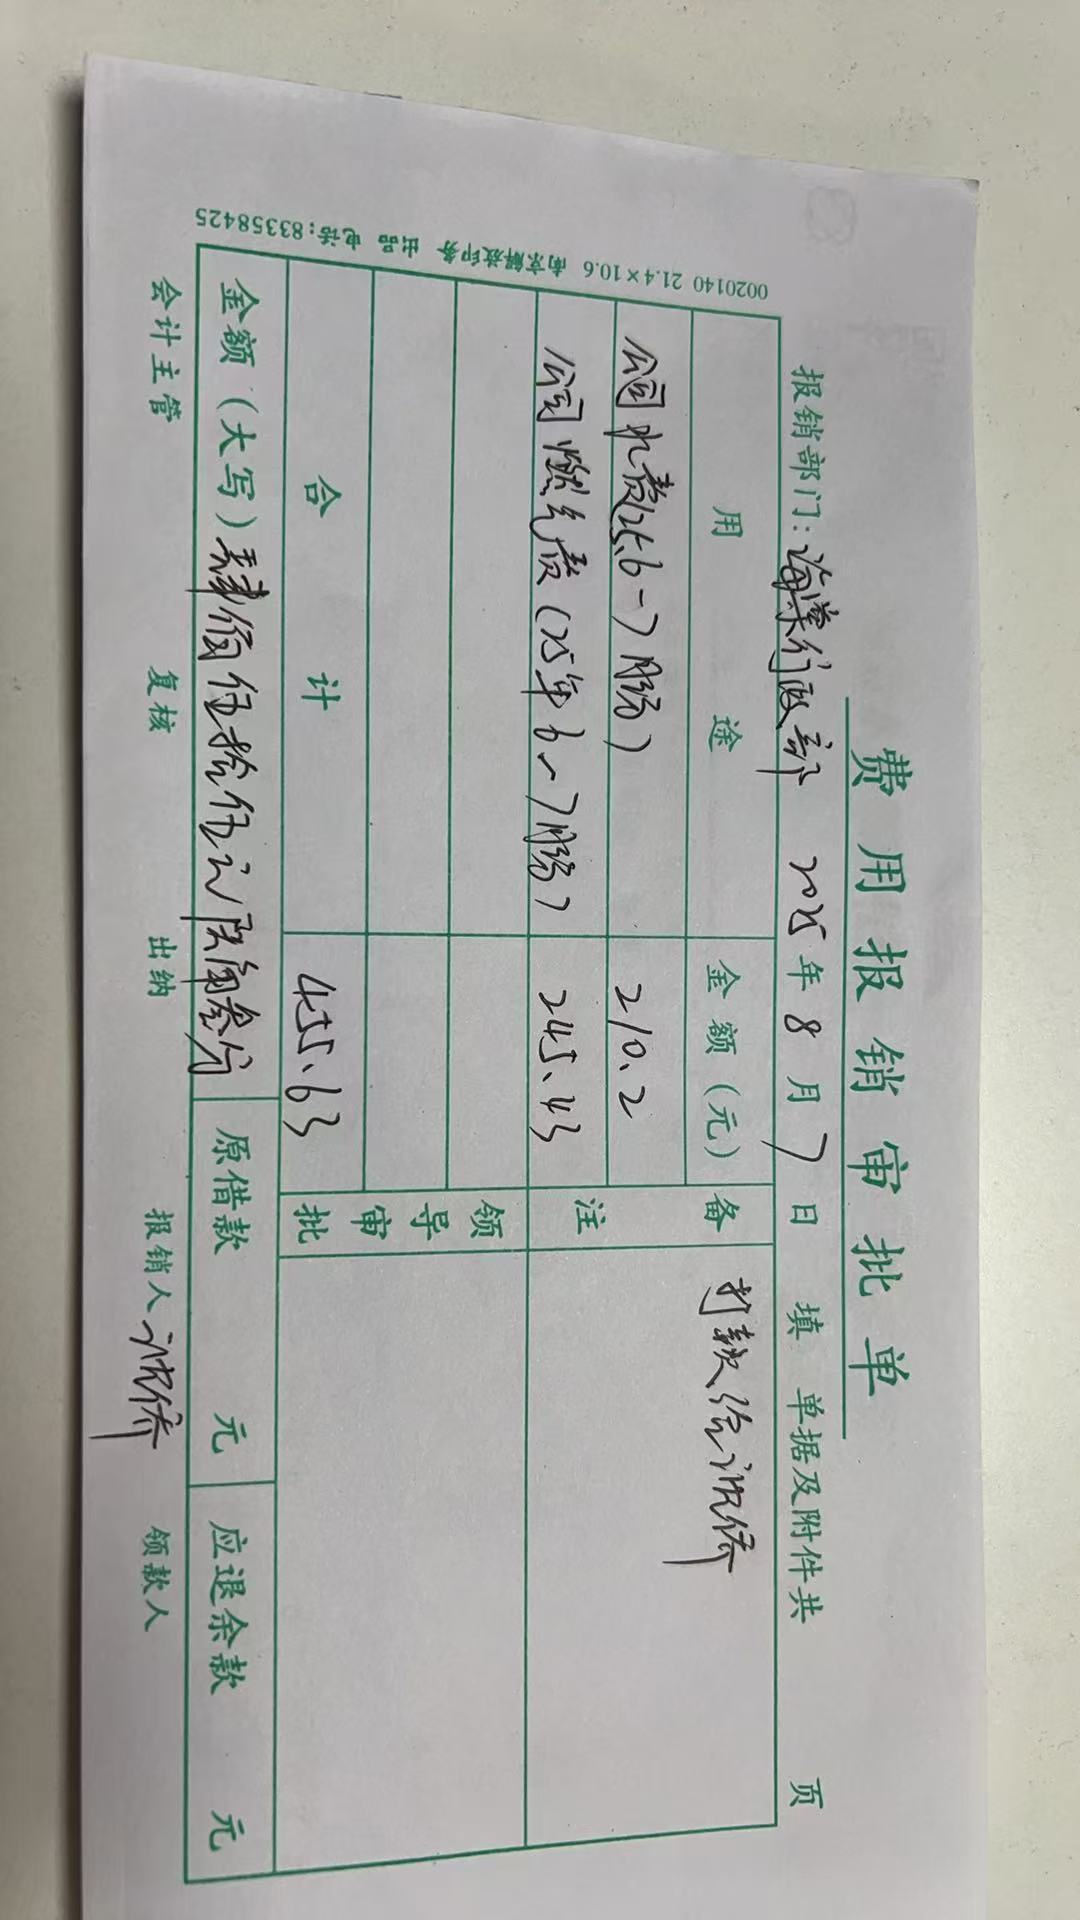 费用报销审批单
报销部门：海棠行政部 2025年8月7日填 单据及附件共 页
用途 金额（元） 备注 打款给许侨
公司水费(25.6-7月份) 210.2
公司燃气费(25年6-7月份) 245.43
领导审批
合计 455.63
金额（大写）肆佰伍拾伍元陆角叁分 原借款 元 应退余款 元
会计主管 复核 出纳 报销人 许侨 领款人
0020140 21.4×10.6 南京解放印务 出品 电话:83358425